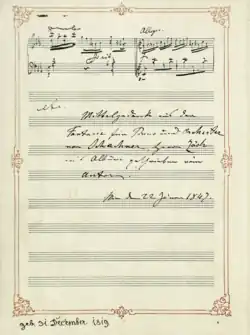 Allegro
Mittelgedanke aus der
Fantasie für Piano und Orchester
von Schachner, Herrn
ins Album geschrieben vom
Autor.
Wien den 22 Jänner 1847.
geb. 31. December 1819